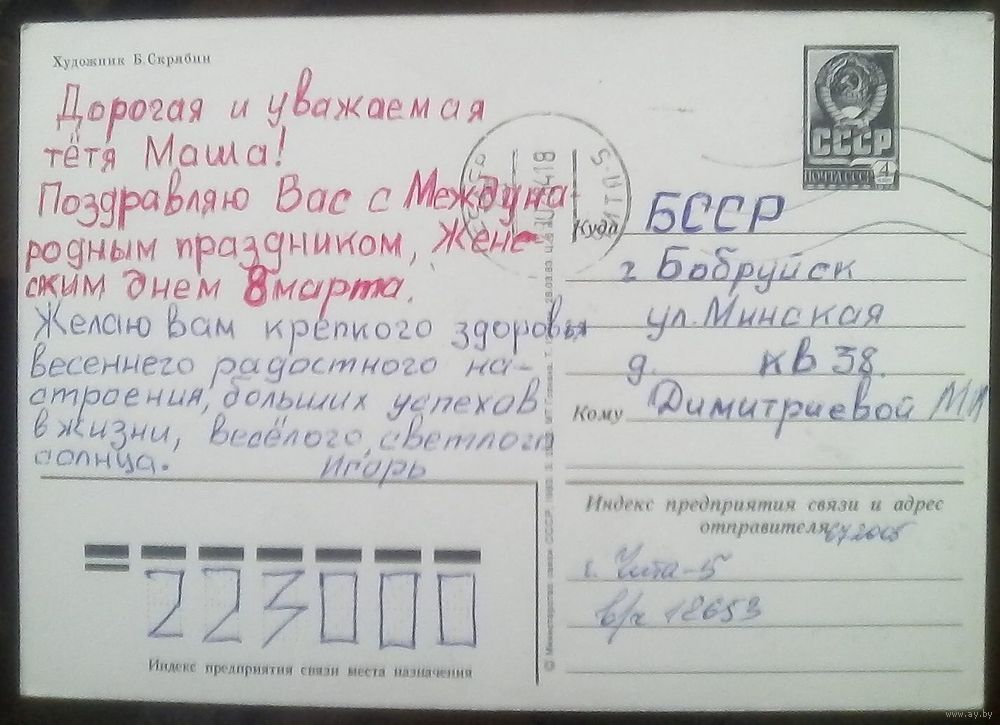 Художник Б. Скрябин
Дорогая и уважаемая
тётя Маша!
Поздравляю Вас с Междуна-
родным праздником, Женс-
ским днем 8 марта.
Желаю вам крепкого здоровья
весеннего радостного на-
строения, больших успехов
в жизни, весёлого, светлого
солнца.
Игорь
СССР
ПОЧТА СССР 4
Куда БССР
г Бобруйск
ул. Минская
д. кв 38.
Кому Димитриевой
Индекс предприятия связи и адрес
отправителя 672005
г. Чита-5
в/ч 18653
223000
Индекс предприятия связи места назначения
© Министерство связи СССР.
28.03.83.
www.ay.by